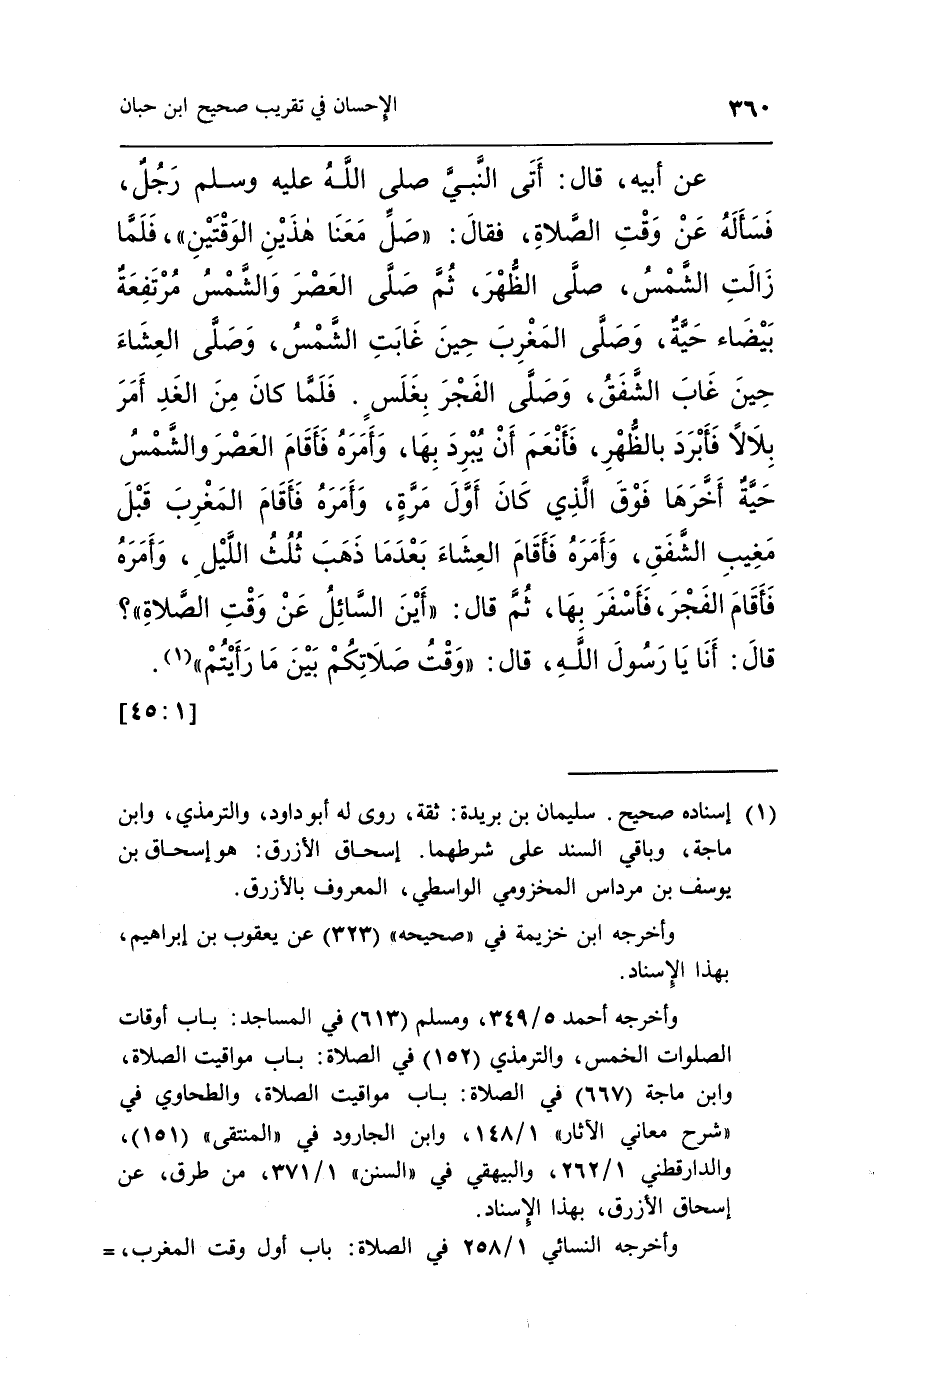 ٣٦٠ الإحسان في تقريب صحيح ابن حبان
عن أبيه، قال: أَتَى النَّبيَّ صلى اللَّهُ عليه وسلم رَجُلٌ،
فَسَأَلَهُ عَنْ وَقْتِ الصَّلاةِ، فقالَ: «صَلِّ مَعَنَا هٰذَيْنِ الوَقْتَيْنِ»، فَلَمَّا
زَالَتِ الشَّمْسُ، صلَّى الظُّهْرَ، ثُمَّ صَلَّى العَصْرَ وَالشَّمْسُ مُرْتَفِعَةٌ
بَيْضَاء حَيَّةٌ، وَصَلَّى المَغْرِبَ حِينَ غَابَتِ الشَّمْسُ، وَصَلَّى العِشَاءَ
حِينَ غَابَ الشَّفَقُ، وَصَلَّى الفَجْرَ بِغَلَسٍ. فَلَمَّا كانَ مِنَ الغَدِ أَمَرَ
بِلَالًا فَأَبْرَدَ بالظُّهْرِ، فَأَنْعَمَ أَنْ يُبْرِدَ بِهَا، وَأَمَرَهُ فَأَقَامَ العَصْرَ والشَّمْسُ
حَيَّةٌ أَخَّرَهَا فَوْقَ الَّذِي كَانَ أَوَّلَ مَرَّةٍ، وَأَمَرَهُ فَأَقَامَ المَغْرِبَ قَبْلَ
مَغِيبِ الشَّفَقِ، وَأَمَرَهُ فَأَقَامَ العِشَاءَ بَعْدَمَا ذَهَبَ ثُلُثُ اللَّيْلِ، وَأَمَرَهُ
فَأَقَامَ الفَجْرَ، فَأَسْفَرَ بِهَا، ثُمَّ قال: «أَيْنَ السَّائِلُ عَنْ وَقْتِ الصَّلاةِ»؟
قالَ: أَنَا يَا رَسُولَ اللَّهِ، قال: «وَقْتُ صَلَاتِكُمْ بَيْنَ مَا رَأَيْتُمْ»(١).
[٤٥:١]
(١) إسناده صحيح. سليمان بن بريدة: ثقة، روى له أبو داود، والترمذي، وابن
ماجة، وباقي السند على شرطهما. إسحاق الأزرق: هو إسحاق بن
يوسف بن مرداس المخزومي الواسطي، المعروف بالأزرق.
وأخرجه ابن خزيمة في «صحيحه» (٣٢٣) عن يعقوب بن إبراهيم،
بهذا الإسناد.
وأخرجه أحمد ٣٤٩/٥، ومسلم (٦١٣) في المساجد: باب أوقات
الصلوات الخمس، والترمذي (١٥٢) في الصلاة: باب مواقيت الصلاة،
وابن ماجة (٦٦٧) في الصلاة: باب مواقيت الصلاة، والطحاوي في
«شرح معاني الأثار» ١٤٨/١، وابن الجارود في «المنتقى» (١٥١)،
والدارقطني ٢٦٢/١، والبيهقي في «السنن» ٣٧١/١، من طرق، عن
إسحاق الأزرق، بهذا الإسناد.
وأخرجه النسائي ٢٥٨/١ في الصلاة: باب أول وقت المغرب، =